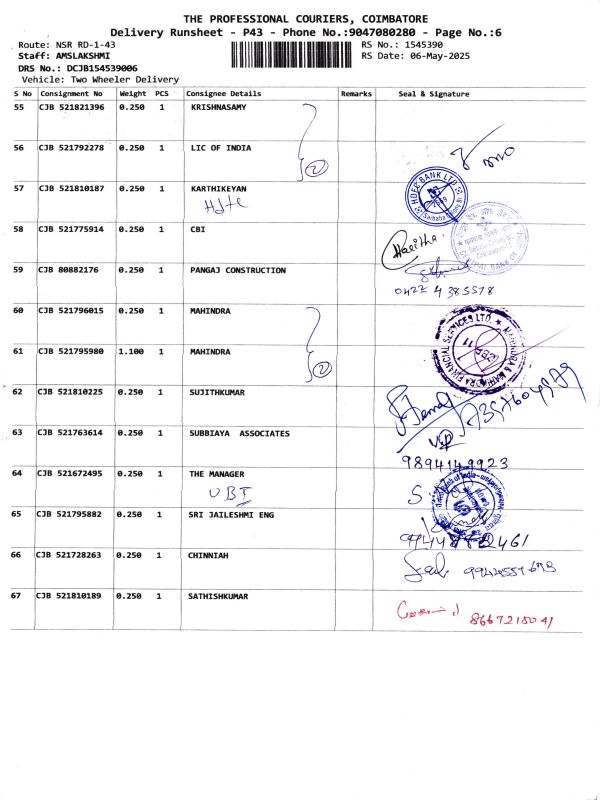 THE PROFESSIONAL COURIERS, COIMBATORE
Delivery Runsheet - P43 - Phone No.:9047080280 - Page No.:6
Route: NSR RD-1-43 RS No.: 1545390
Staff: AMSLAKSHMI RS Date: 06-May-2025
DRS No.: DCJB154539006
Vehicle: Two Wheeler Delivery
S No Consignment No Weight PCS Consignee Details Remarks Seal & Signature
55 CJB 521821396 0.250 1 KRISHNASAMY
56 CJB 521792278 0.250 1 LIC OF INDIA
2
57 CJB 521810187 0.250 1 KARTHIKEYAN
HDFC BANK LTD.
58 CJB 521775914 0.250 1 CBI
Haritha
59 CJB 80882176 0.250 1 PANGAJ CONSTRUCTION
0422 4385578
60 CJB 521796015 0.250 1 MAHINDRA
61 CJB 521795980 1.100 1 MAHINDRA
2
MAHINDRA & MAHINDRA FINANCIAL SERVICES LTD.
62 CJB 521810225 0.250 1 SUJITHKUMAR
63 CJB 521763614 0.250 1 SUBBIAYA ASSOCIATES
9894149923
64 CJB 521672495 0.250 1 THE MANAGER
UBI
65 CJB 521795882 0.250 1 SRI JAILESHMI ENG
66 CJB 521728263 0.250 1 CHINNIAH
67 CJB 521810189 0.250 1 SATHISHKUMAR
8667215041